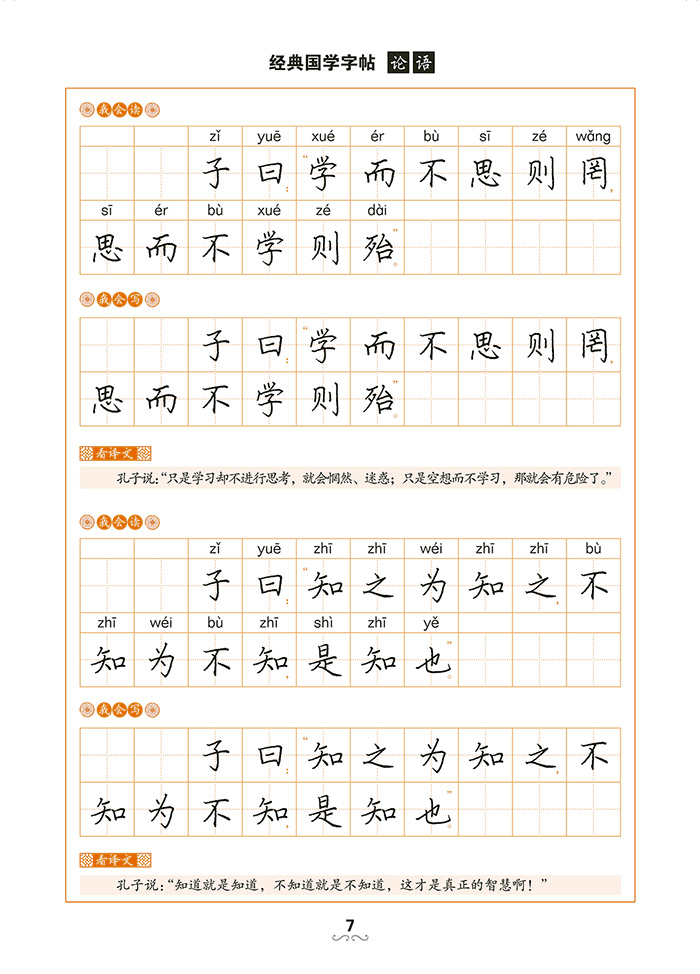 经典国学字帖 论语
我会读
zǐ yuē xué ér bù sī zé wǎng
子曰：“学而不思则罔，
sī ér bù xué zé dài
思而不学则殆。”
我会写
子曰：“学而不思则罔，
思而不学则殆。”
看译文
孔子说：“只是学习却不进行思考，就会惘然、迷惑；只是空想而不学习，那就会有危险了。”
我会读
zǐ yuē zhī zhī wéi zhī zhī bù
子曰：“知之为知之，不
zhī wéi bù zhī shì zhī yě
知为不知，是知也。”
我会写
子曰：“知之为知之，不
知为不知，是知也。”
看译文
孔子说：“知道就是知道，不知道就是不知道，这才是真正的智慧啊！”
7